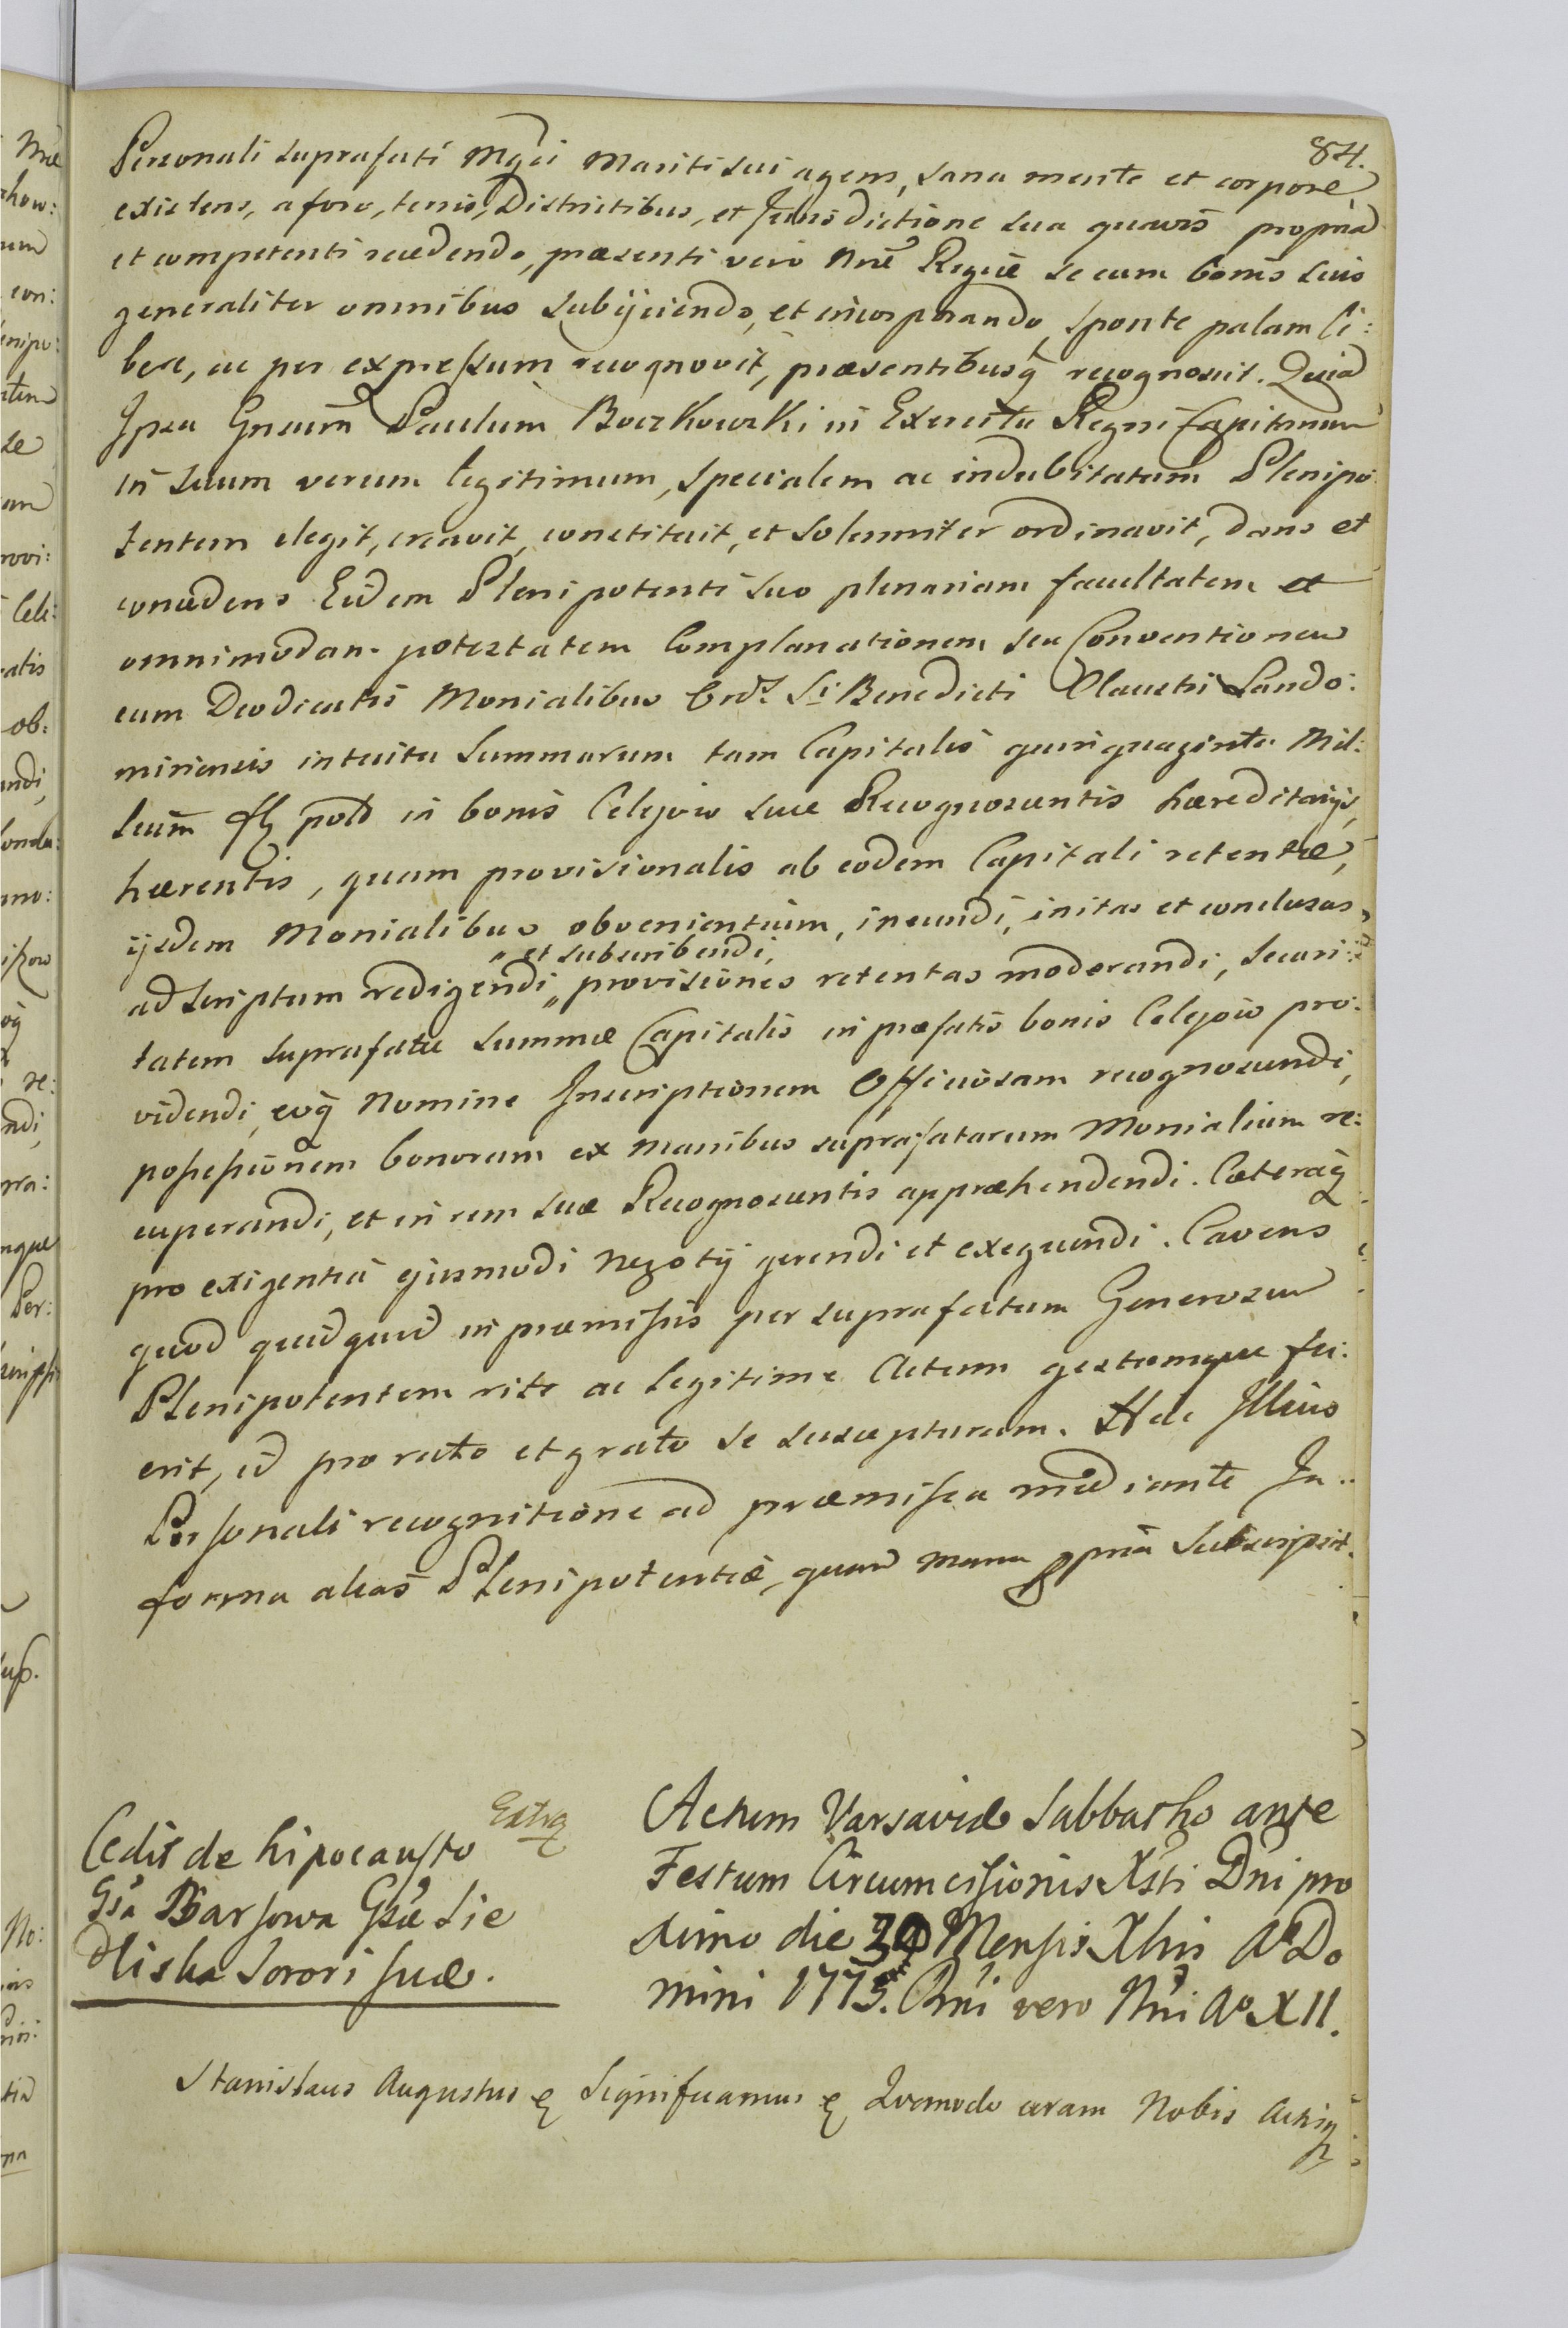 84.
Personali suprafati Mgci Mariti sui agens, sana mente et corpore
existens, a foro, terris, Districtibus, et Jurisdictione sua quavis propria
et competenti recedendo, præsenti vero Nræ Regiæ se cum bonis suis
generaliter omnibus subijciendo, et incorporando, sponte palam li:
bere, ac per expressum recognovit, præsentibusq recognoscit. Quia
Ipsa Gnsum Paulum Boczkowski in Exercitu Regni Capitaneum
in suum verum legitimum, specialem ac indubitatum Plenipo
tentem elegit, creavit, constituit, et solenniter ordinavit, dans et
concedens Eidem Plenipotenti suo plenariam facultatem et
omnimodam potestatem Complanationem seu Conventionem
cum Deodicatis Monialibus Ord: Sti Benedicti Claustri Sando:
miriensis intuitu Summarum tam Capitalis quinquaginta Mil:
lium fl pold in bonis Celejow suæ Recognoscentis hæreditarijs,
hærentis, quam provisionalis ab eodem Capitali retentæ,
ijsdem Monialibus obvenientium, ineundi, initas et conclusas
" et subscribendi,
ad scriptum redigendi " provisiones retentas moderandi, securi:
tatem suprafatæ summæ Capitalis in præfatis bonis Celejow pro:
videndi, eoq Nomine Inscriptionem Officiosam recognoscendi,
possessionem bonorum ex manibus suprafatarum Monialium re:
cuperandi, et in rem suæ Recognoscentis appræhendendi. Cæteraq
pro exigentia ejusmodi Negotij gerendi et exequendi. Cavens
quod quidquid in præmissis per suprafatum Generosum
Plenipotentem rite ac legitime Actum gestumque fu:
erit, id pro rato et grato se suscepturam. Hac Illius
Personali recognitione ad præmissa mediante In..
forma alias Plenipotentiæ, quam manu ppria subscripsit.
Extra
Cedit de hipocausto
Gsa Barsowa Gsæ Sie
dliska Sorori suæ.
Actum Varsaviæ Sabbatho ante
Festum Circumcisionis Xsti Dni pro
ximo die 30 Mensis Xbris Ao Do
mini 1775. Rni vero Nri Ao XII.
Stanislaus Augustus & Significamus & Quomodo coram Nobis Actisq